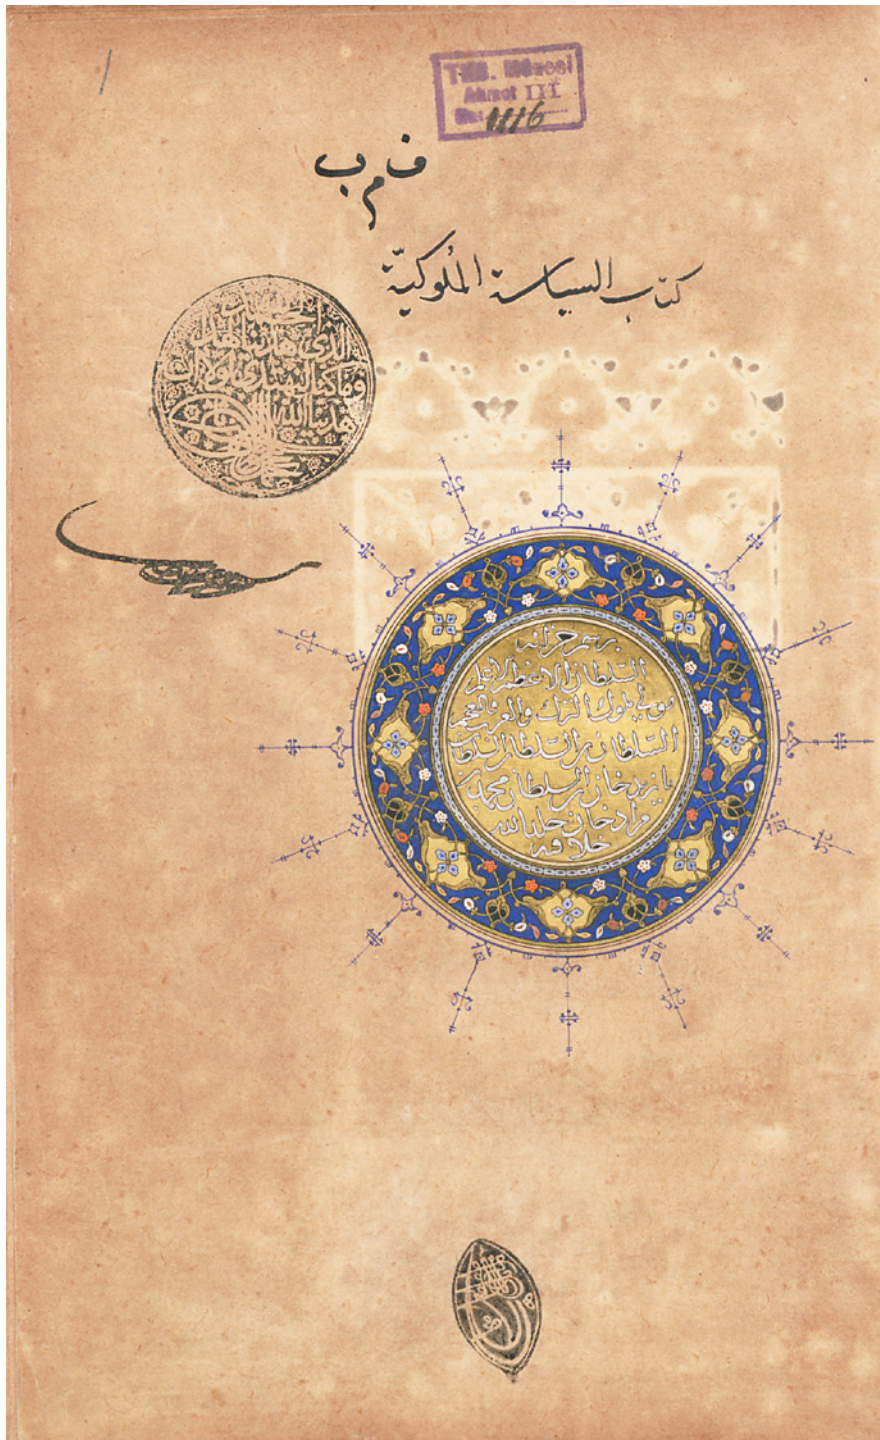 TKS. Müzesi
Ahmet III
No: 1116
ف م ب
كتاب السياسة الملوكية
الحمد لله
الذي هدينا لهذا
وما كنا لنهتدي لولا ان
هدينا الله
برسم خزانة
السلطان الاعظم الاعلم
مولى ملوك الترك والعرب والعجم
السلطان بن السلطان السلطان
بايزيد خان بن السلطان محمد بن
مراد خان خلد الله
خلافته